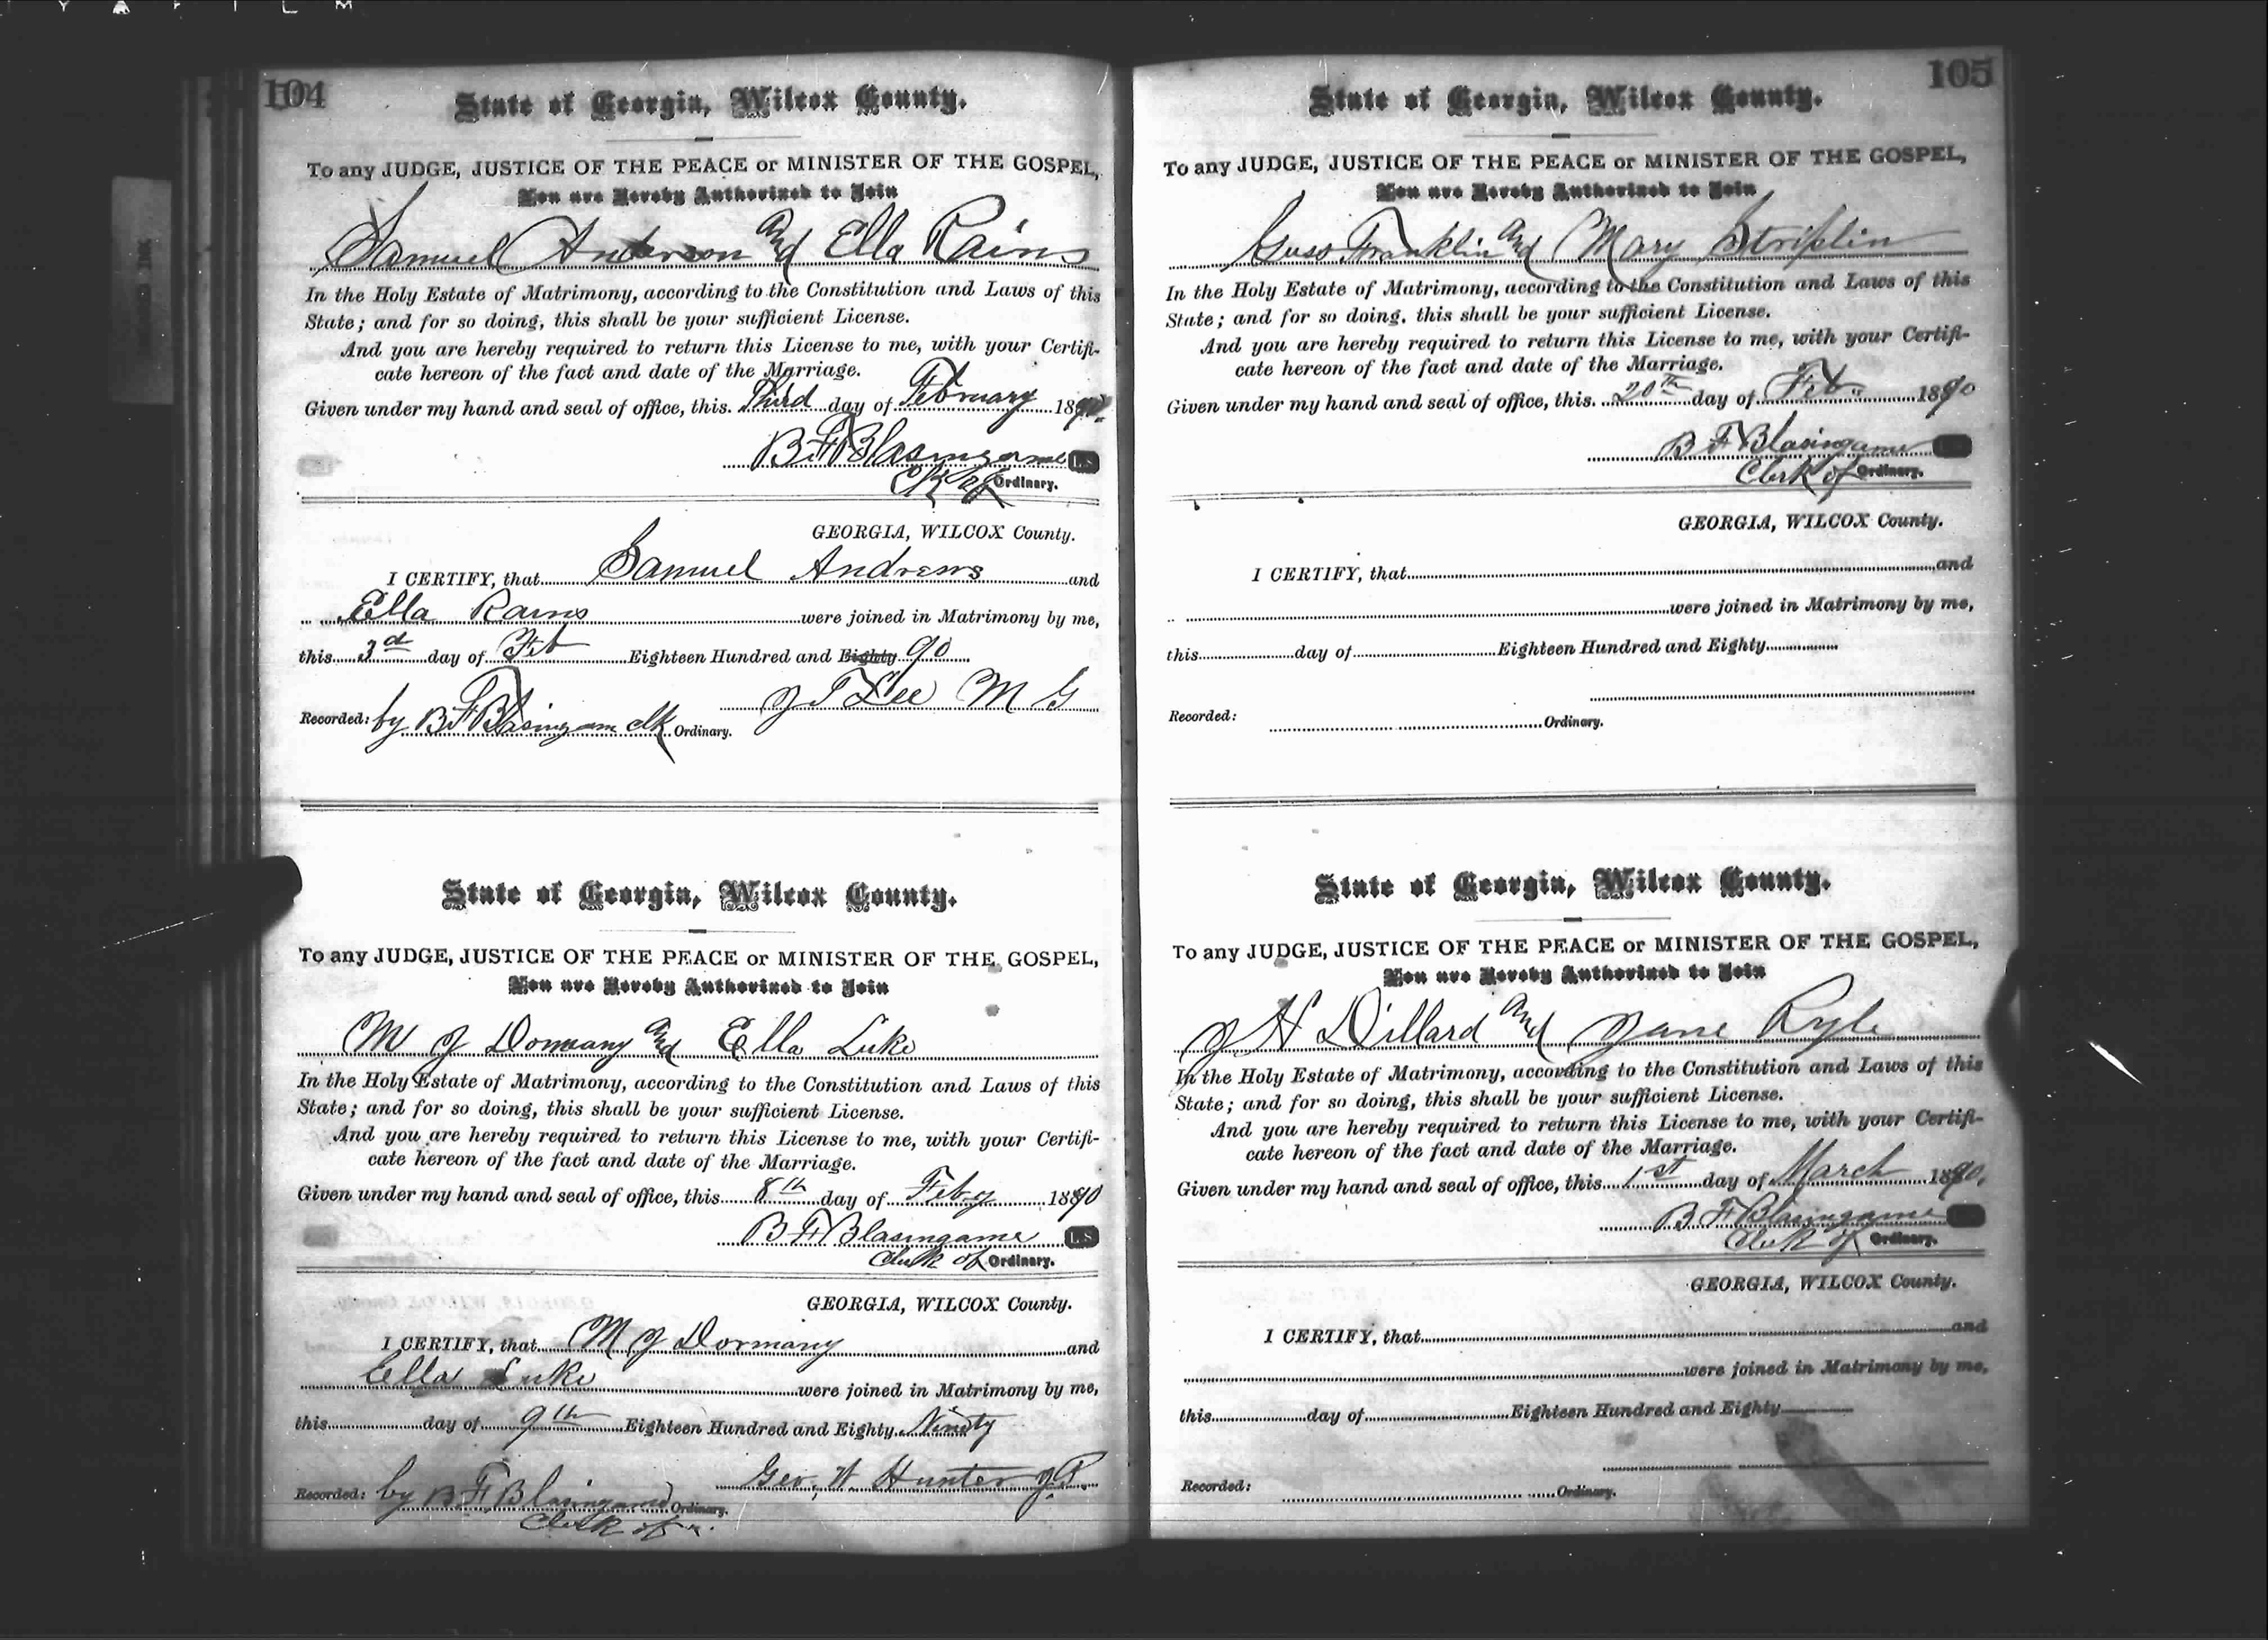 104
State of Georgia, Wilcox County.
To any JUDGE, JUSTICE OF THE PEACE or MINISTER OF THE GOSPEL,
You are Hereby Authorized to Join
Samuel Anderson and Ella Rains
In the Holy Estate of Matrimony, according to the Constitution and Laws of this
State; and for so doing, this shall be your sufficient License.
And you are hereby required to return this License to me, with your Certifi-
cate hereon of the fact and date of the Marriage.
Given under my hand and seal of office, this Third day of February 1890
B F Blasingame L.S
Clk of Ordinary.
GEORGIA, WILCOX County.
I CERTIFY, that Samuel Andrews and
Ella Rains were joined in Matrimony by me,
this 3d day of Feb Eighteen Hundred and Eighty 90
J T Lee M G
Recorded: by B F Blasingam clk Ordinary.
State of Georgia, Wilcox County.
To any JUDGE, JUSTICE OF THE PEACE or MINISTER OF THE GOSPEL,
You are Hereby Authorized to Join
M J Dormany and Ella Luke
In the Holy Estate of Matrimony, according to the Constitution and Laws of this
State; and for so doing, this shall be your sufficient License.
And you are hereby required to return this License to me, with your Certifi-
cate hereon of the fact and date of the Marriage.
Given under my hand and seal of office, this 8th day of Feby 1890
B F Blasingame L.S
Clerk of Ordinary.
GEORGIA, WILCOX County.
I CERTIFY, that M J Dormany and
Ella Luke were joined in Matrimony by me,
this day of 9th Eighteen Hundred and Eighty Ninety
Geo. W. Hunter J.P.
Recorded: by B F Blasingame Ordinary.
Clerk of
105
State of Georgia, Wilcox County.
To any JUDGE, JUSTICE OF THE PEACE or MINISTER OF THE GOSPEL,
You are Hereby Authorized to Join
Guss Franklin and Mary Striplin
In the Holy Estate of Matrimony, according to the Constitution and Laws of this
State; and for so doing, this shall be your sufficient License.
And you are hereby required to return this License to me, with your Certifi-
cate hereon of the fact and date of the Marriage.
Given under my hand and seal of office, this 20th day of Feb. 1890
B F Blasingame
Clerk of Ordinary.
GEORGIA, WILCOX County.
I CERTIFY, that and
were joined in Matrimony by me,
this day of Eighteen Hundred and Eighty
Recorded: Ordinary.
State of Georgia, Wilcox County.
To any JUDGE, JUSTICE OF THE PEACE or MINISTER OF THE GOSPEL,
You are Hereby Authorized to Join
J H Dillard and Jane Ryle
In the Holy Estate of Matrimony, according to the Constitution and Laws of this
State; and for so doing, this shall be your sufficient License.
And you are hereby required to return this License to me, with your Certifi-
cate hereon of the fact and date of the Marriage.
Given under my hand and seal of office, this 1st day of March 1890.
B F Blasingame
Clerk of Ordinary.
GEORGIA, WILCOX County.
I CERTIFY, that and
were joined in Matrimony by me,
this day of Eighteen Hundred and Eighty
Recorded: Ordinary.